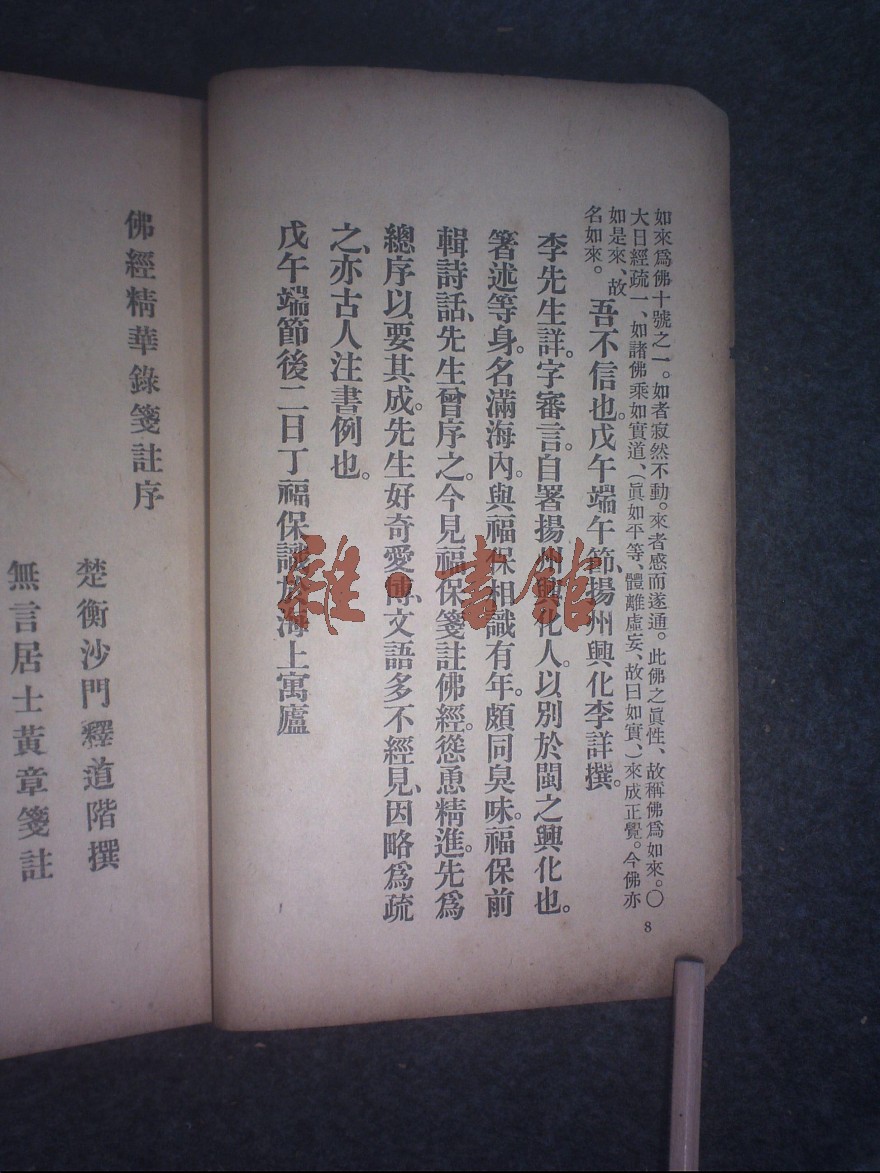 如來爲佛十號之一。如者寂然不動。來者感而遂通。此佛之眞性、故稱佛爲如來。〇
大日經疏一、如諸佛乘如實道、(眞如平等、體離虛妄、故曰如實、)來成正覺。今佛亦
如是來、故
名如來。
吾不信也。戊午端午節、揚州興化李詳撰。
李先生詳。字審言。自署揚州興化人。以別於閩之興化也。
箸述等身。名滿海內。與福保相識有年。頗同臭味。福保前
輯詩話、先生曾序之。今見福保箋註佛經。慫恿精進。先爲
總序以要其成。先生好奇愛博、文語多不經見、因略爲疏
之、亦古人注書例也。
戊午端節後二日丁福保識於海上寓廬
8
佛經精華錄箋註序
楚衡沙門釋道階撰
無言居士黃章箋註
雜·書館